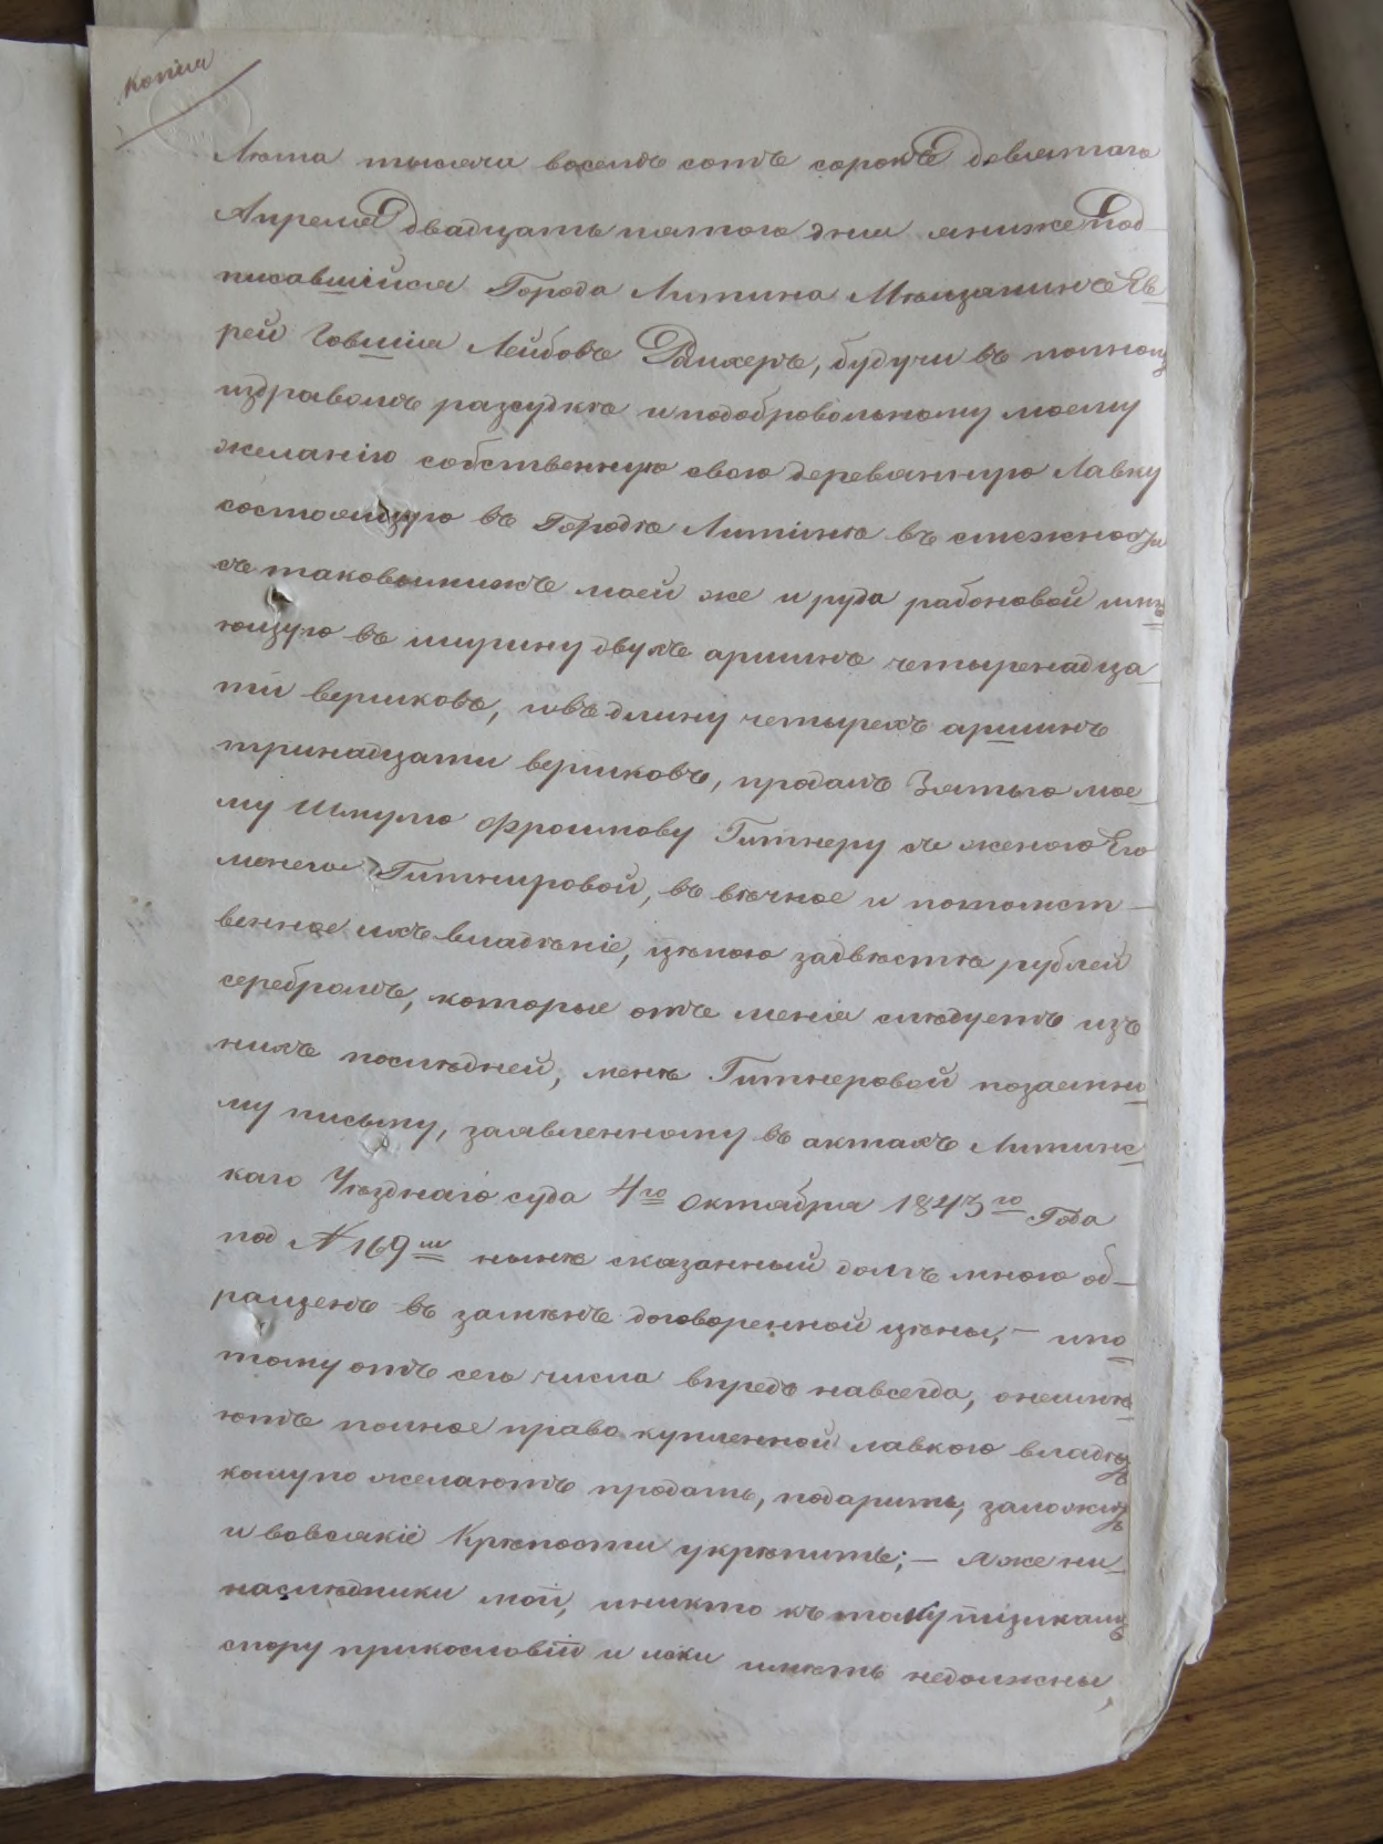 Копія
Лѣта тысяча восемь сотъ сорокъ девятаго
Апреля двадцать пятого дня я нижепод-
писавшійся Города Литина Мѣщанинъ Ев-
рей Іовшія Лейбовъ будучи въ полномъ
издравомъ разсудкѣ и подобровольному моему
желанію собственную свою деревянную Лавку
состоящую въ Городѣ Литинѣ въ смежности
съ таковыми жъ моей же и руда рабоновой имѣ
ющую въ ширину двухъ аршинъ четыренадца-
ти вершковъ, и въ длину четырехъ аршинъ
тринадцати вершковъ, продалъ Зятью мое-
му Шмулю Фроимову Гитнеру съ женою Его
Гитнировой, въ вѣчное и потомст-
венное ихъ владѣніе, цѣною за двѣстѣ рублей
серебромъ, которые отъ меня слѣдуетъ изъ
нихъ послѣдней, Гитнеровой позаемно
му письму, заявленному въ актахъ Литинс-
каго Уѣзднаго суда 4го Октября 1843го Года
под № 169м нынѣ сказанный долгъ мною об-
ращенъ въ замѣнъ договоренной цѣны, — и по
тому отъ сего числа впредь навсегда, они имѣ
ютъ полное право купленной лавкою владѣть
кому по желаютъ продать, подарить, заложить
и вовсякіе Крѣпости укрѣпить; — я же ни
наслѣдники мои, и никто къ покупщикамъ
спору прикословій и иски имѣть недолжны,